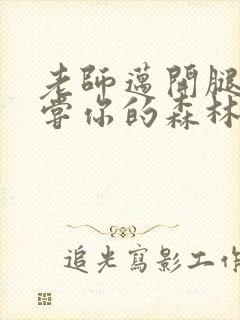 老師邁開腿
嘗你的森林
追光寫影工作